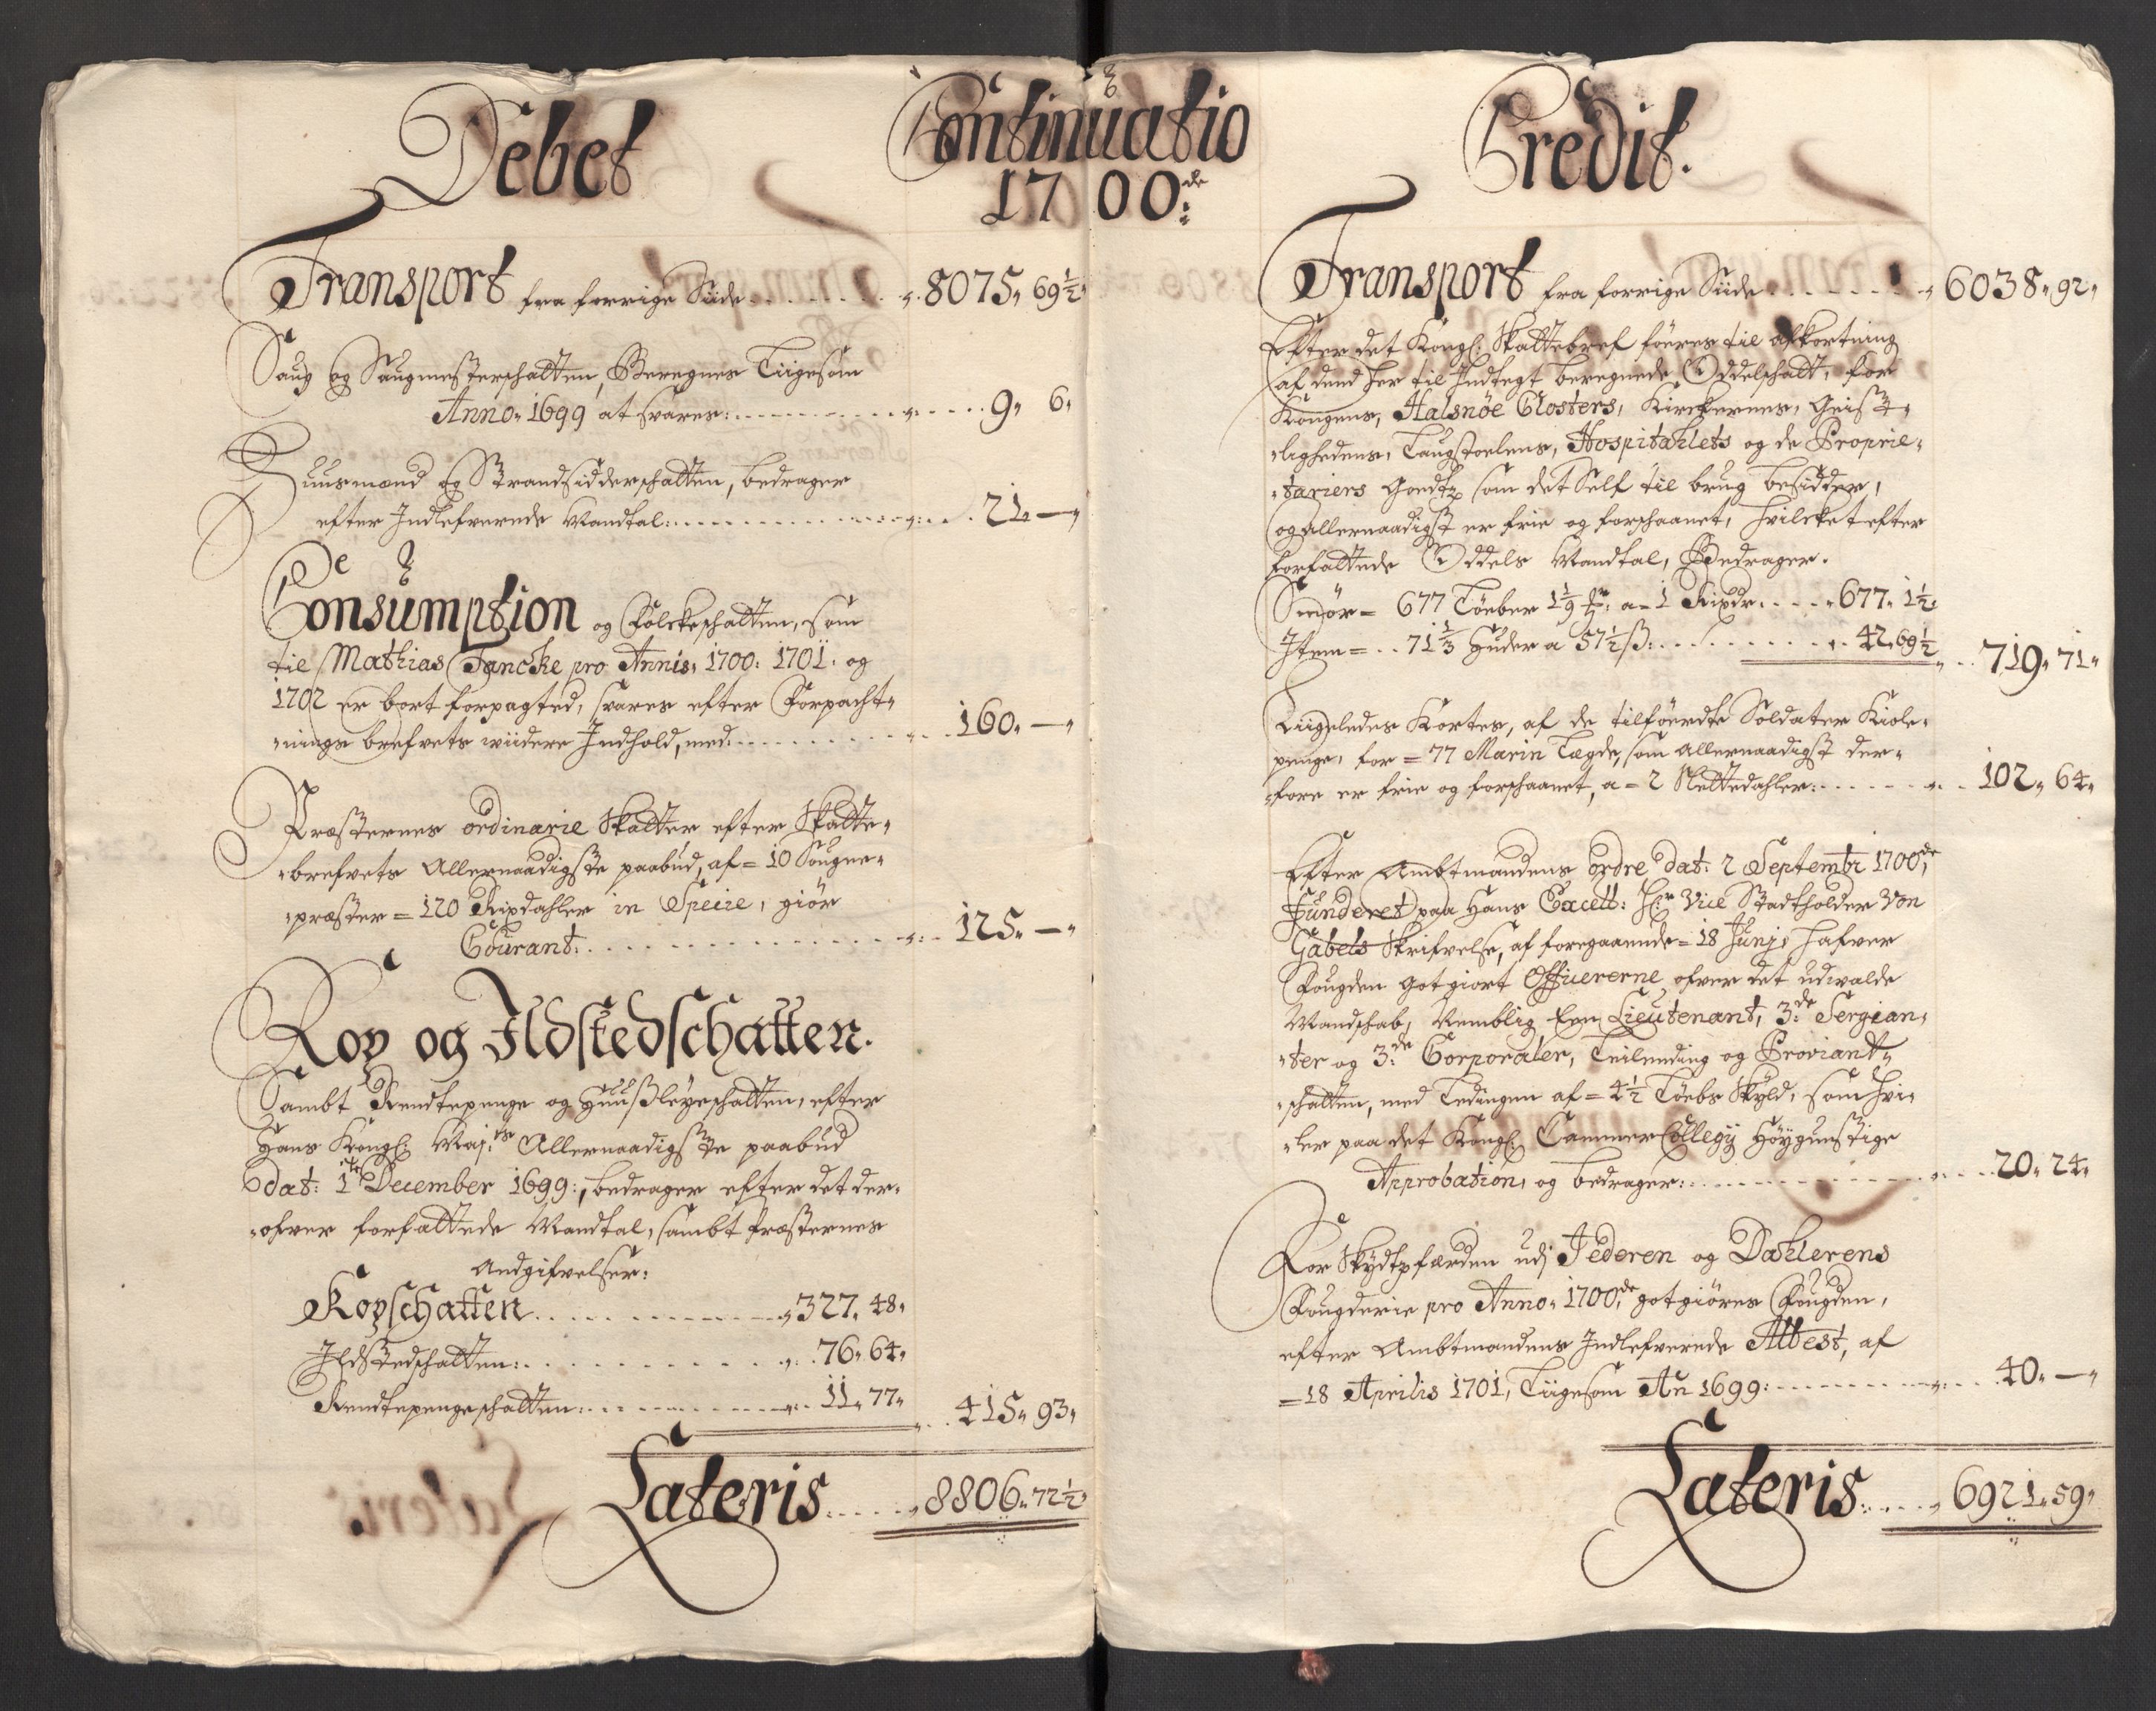 Debet
Continuatio
1700de
Transport fra forrige Siide 8075 69½
Saug og Saugmesterschatten, Beregnes Ligesom
Anno 1699 at svares: 9 6
Huusmænd og Strandsidderschatten, bedrager
efter Indlefverede Mandtal: 21 —
Consumption og Folckeschatten, som
til Mathias Tancke pro Annis, 1700: 1701: og
1702 er bort forpagted, svares efter Forpacht-
nings brefvets widere Indhold, med 160 —
Præsternes ordinarie Skatter efter Skatte-
brefvets Allernaadigste paabud, af = 10 Sougne-
præster = 120 Rixdahler in Specie, giör
Courant: 125 —
Kop og Ildstedschatten.
Sambt Rendtepenge og Huußleyeschatten, efter
Hans Kongl: May:ts Allernaadigste paabud
dat: 1te December 1699:, bedrager efter det der-
ofver forfattede Mandtal, sambt Præsternes
Andgifvelser:
Kopschatten 327 48
Ildstedschatten: 76 64
Rendtepengeschatten: 11 77 415 93
Lateris 8806 72½
Credit.
Transport fra forrige Siide 6038 92
Efter det Kongl: Skattebref föeres til afkortning
af dend her til Indtegt beregnede Oddelschatt, for
Kongens, Halsnöe Closters, Kirckernes, Geist-
lighedens, Laugstoelens, Hospitahlets og de Proprie-
tariers Goedtz som det Self til brug besidder,
og allernaadigst er frie og forschaanet, hvilcket efter
forfattede Oddels Mandtal, Bedrager.
Smör = 677 Löeber 1 1/9 a = 1 Rixdr. 677 1½
Item = 71⅓ Huder a 57½ ß: 42 69½ 719 71
Liigeledes Kortes, af de tilföerdte Soldater Kiole-
penge, for = 77 Marin Lægde, som allernaadigst der-
fore er frie og forschaanet, a = 2 Slettedahler: 102 64
Efter Ambtmandens ordre dat: 2 Septembr 1700de,
Funderet paa Hans Excell: Hr. Vice Stadtholder Von
Gabels Skrifvelse, af foregaaende = 18 Junj, hafver
Fougden got giort Officererne ofver det udvalde
Mandskab, Nemblig Een Lieutenant, 3de Sergian-
ter og 3de Corporaler, Leilending og Proviant-
schatten, med Tedingen af = 4½ Löebs Skyld, som hvi-
ler paa det Kongl: Cammer Collegij Höygunstige
Approbation, og bedrager: 20 24
For Skydtzfærden udj Jederen og Dahlerens
Fougderie pro Anno 1700de gotgiöres Fougden,
efter Ambtmandens Indlefverede Attest, af
= 18 Aprilis 1701, Liigesom An 1699: 40 —
Lateris 6921 59